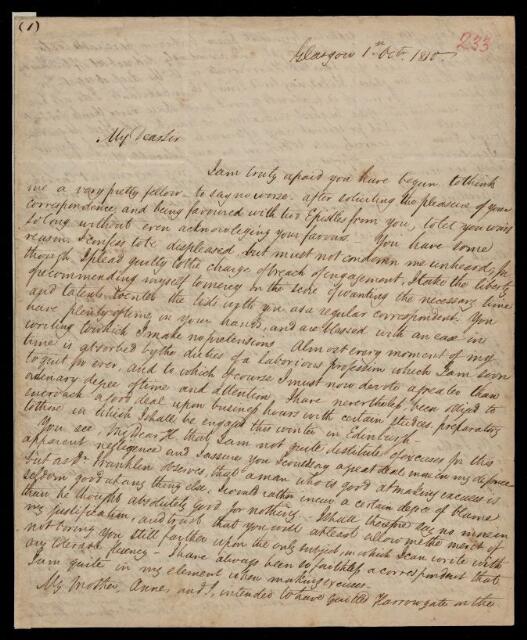 (1)
233
Glasgow 1st Octr. 1810
My Dear Sir
I am truly afraid you have begun to think
me a very pretty fellow - to say no worse - after soliciting the pleasure of your
correspondence, and being favoured with two Epistles from you, to let you wait
so long without even acknowledging your favours. You have some
reason I confess to be displeased, but must not condemn me unheard, for
though I plead guilty to the charge of breach of engagement, I take the liberty
of recommending myself to mercy on the score of wanting the necessary time
and talents to enter the lists with you as a regular correspondent. You
have plenty of time in your hands, and are blessed with an ease in
writing to which I make no pretensions. Almost every moment of my
time is absorbed by the duties of a laborious profession which I am soon
to quit for ever, and to which of course I must now devote a greater than
ordinary degree of time and attention. I have nevertheless been obliged to
encroach a good deal upon business hours with certain studies, preparatory
to those in which I shall be engaged this winter in Edinburgh.
You see, My Dear H that I am not quite destitute of excuses for this
apparent negligence and I assure you I could say a great deal more in my defence
but as Dr. Franklin observes, that a man who is good at making excuses is
seldom good at any thing else, I would rather incur a certain degree of blame
than be thought absolutely good for nothing. I shall therefore say no more in
my justification, and trust that you will at least allow me the merit of
not boring you still farther upon the only subject, in which I can write with
any tolerable fluency - I have always been so faithless a correspondent that
I am quite in my element when making excuses.
My Mother, Anne, and I, intended to have quitted Harrowgate on the